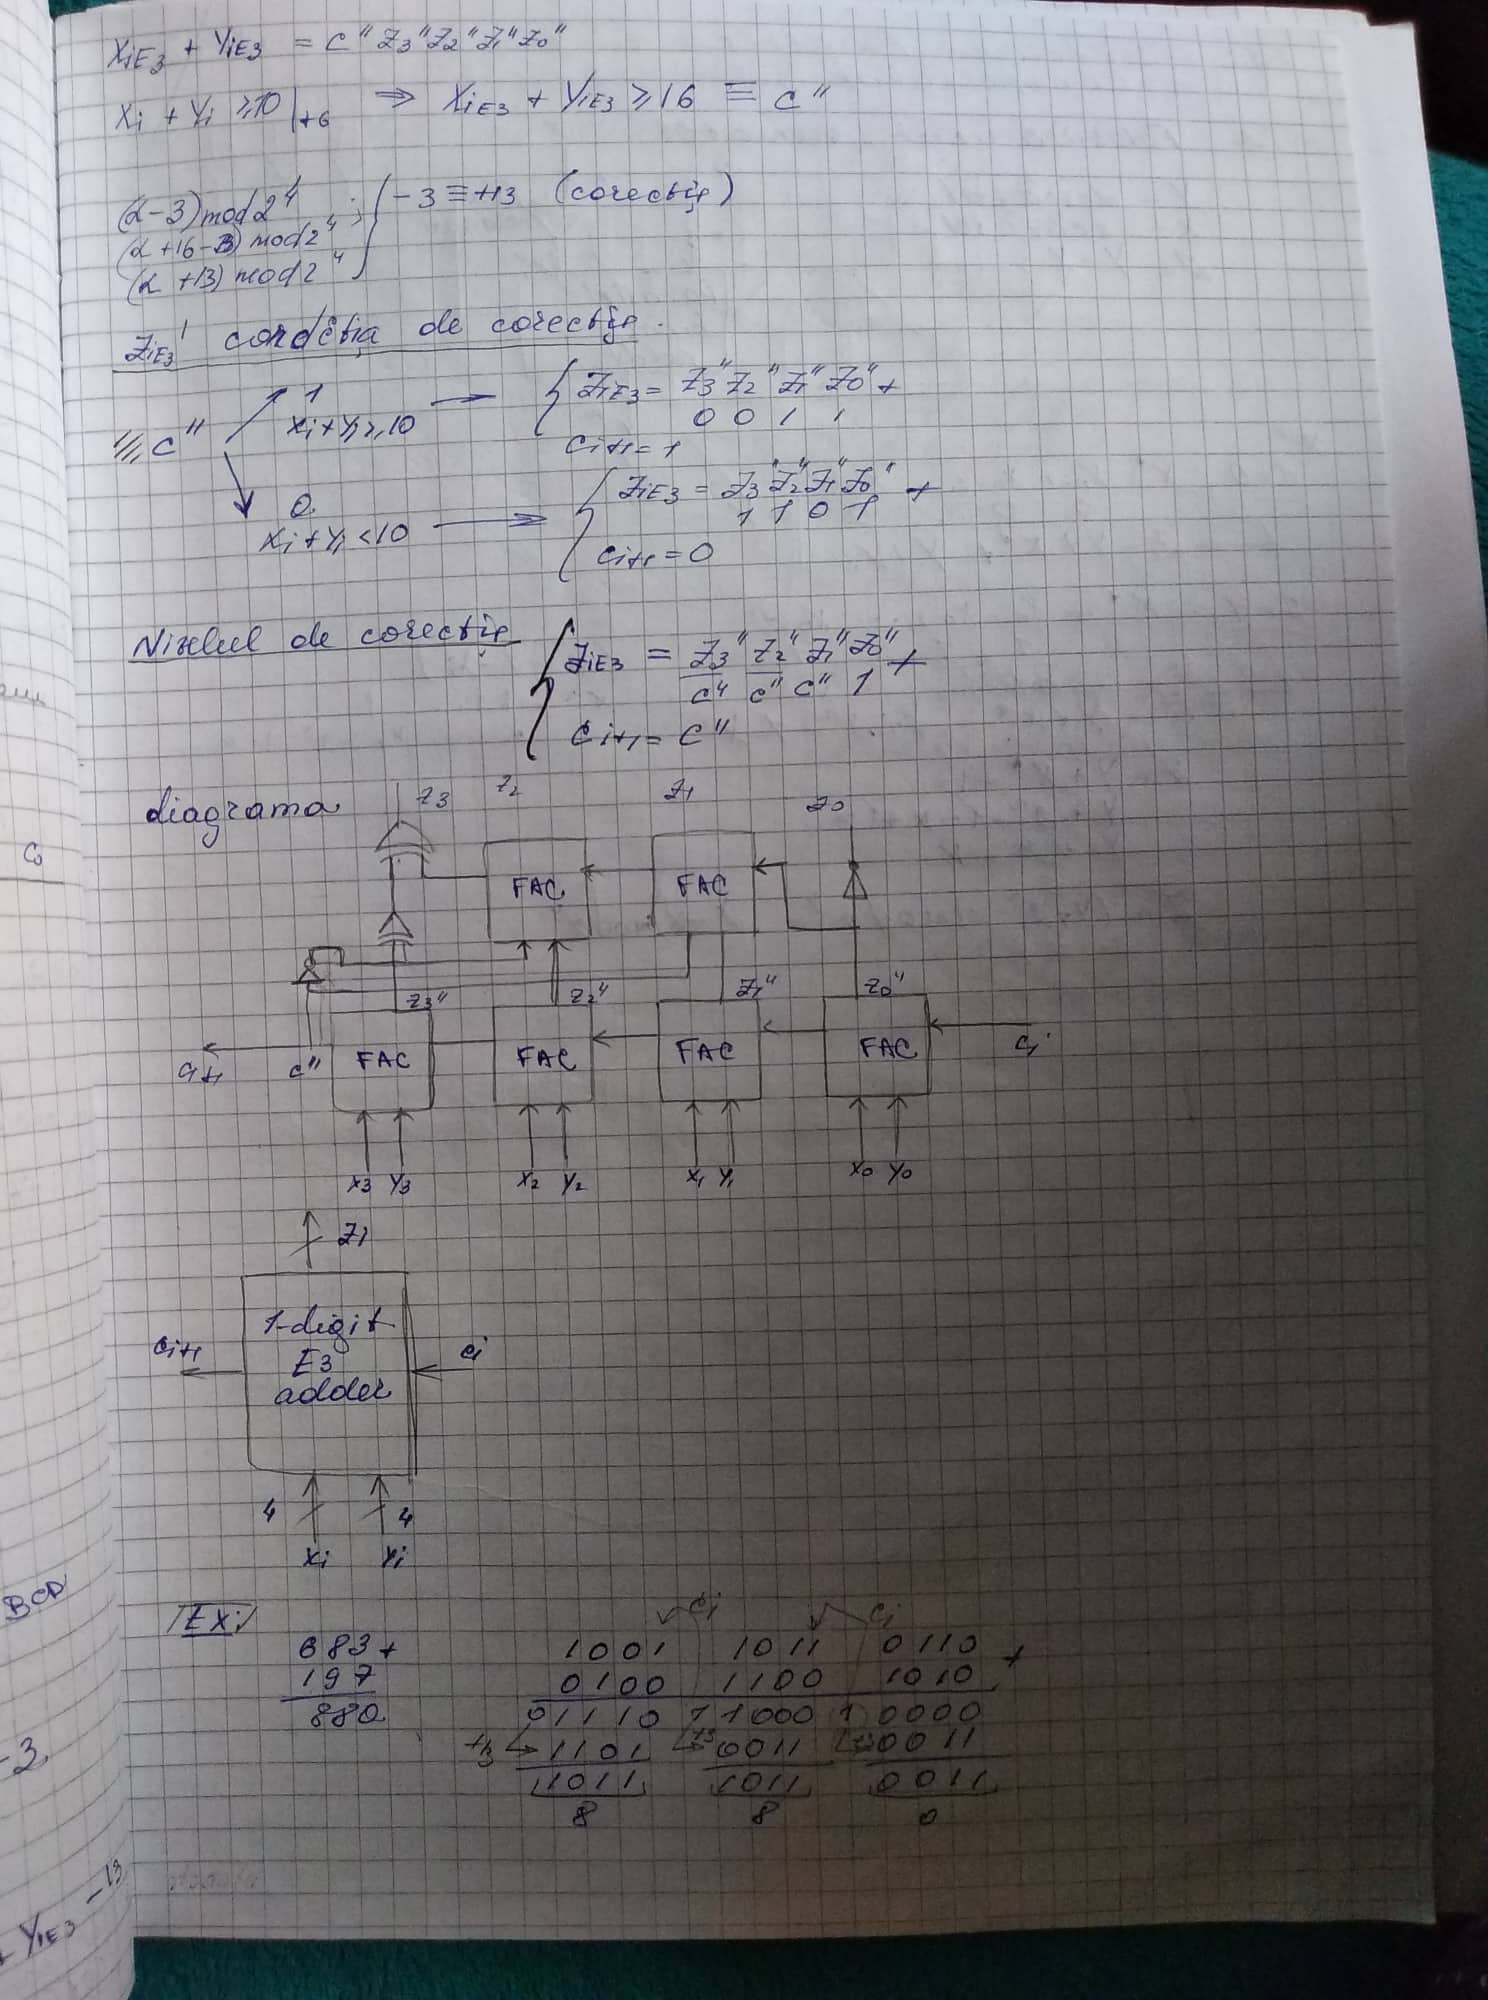 XiE3 + YiE3 = C" Z3" Z2" Z1" Z0"
Xi + Yi ≥ 10 |+6 ⇒ XiE3 + YiE3 ≥ 16 ≡ C"
(α-3) mod 2⁴ ; } -3 ≡ +13 (corecție)
(α+16-3) mod 2⁴
(α+13) mod 2⁴
ZiE3' condiția de corecție.
1
Xi + Yi ≥ 10 → { ZiE3 = Z3" Z2" Z1" Z0" +
C" 0 0 1 1
Ci+1 = 1
0
Xi + Yi < 10 → { ZiE3 = Z3" Z2" Z1" Z0" +
1 1 0 1
Ci+1 = 0
Nivelul de corecție { ZiE3 = Z3" Z2" Z1" Z0" +
C̅" C̅" C" 1
Ci+1 = C"
diagrama Z3 Z2 Z1 Z0
FAC FAC
Z3" Z2" Z1" Z0"
Ci+1 C" FAC FAC FAC FAC Ci
X3 Y3 X2 Y2 X1 Y1 X0 Y0
Zi
1-digit
Ci+1 E3 Ci
adder
4 4
Xi Yi
Ex: Ci Ci
683 + 1001 1011 0110 +
197 0100 1100 1010
880 01110 1 1000 1 0000
+13 1101 +3 0011 +3 0011
1011 1011 0011
8 8 0
C0
BCD
-3
YiE3 -13